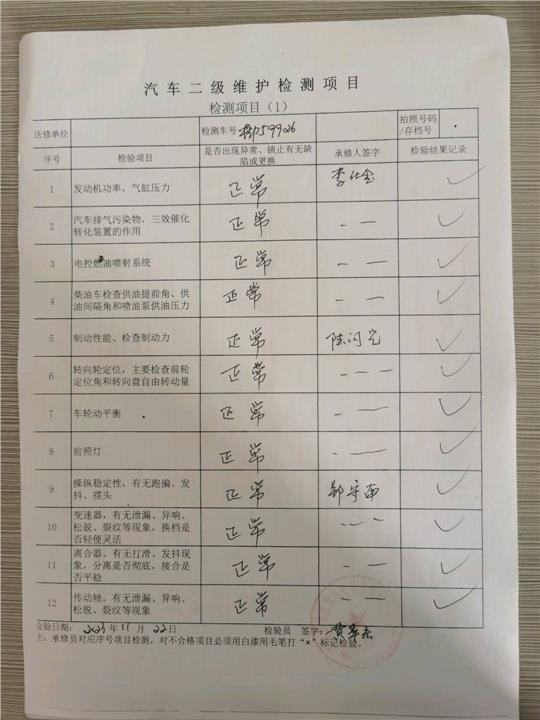 汽车二级维护检测项目
检测项目（1）
送修单位 检测车号 拍照号码/存档号
序号 检验项目 是否出现异常、锁止有无缺陷或更换 承修人签字 检验结果记录
1 发动机功率，气缸压力 正常 李仕金 ✓
2 汽车排气污染物，三效催化转化装置的作用 正常 — — ✓
3 电控燃油喷射系统 正常 — — ✓
4 柴油车检查供油提前角、供油间隔角和喷油泵供油压力 正常 — — ✓
5 制动性能、检查制动力 正常 陆闪光 ✓
6 转向轮定位，主要检查前轮定位角和转向盘自由转动量 正常 — — — ✓
7 车轮动平衡 正常 — — ✓
8 前照灯 正常 — — — ✓
9 操纵稳定性，有无跑偏、发抖、摆头 正常 ✓
10 变速器，有无泄漏、异响、松脱、裂纹等现象，换档是否轻便灵活 正常 — — — ✓
11 离合器，有无打滑、发抖现象，分离是否彻底，接合是否平稳 正常 — — — ✓
12 传动轴，有无泄漏、异响、松脱、裂纹等现象 正常 — — — ✓
检验日期：2023年11月22日 检验员 签字：
主：承修员对应序号项目检测，对不合格项目必须用白漆用毛笔打"×"标记检验。